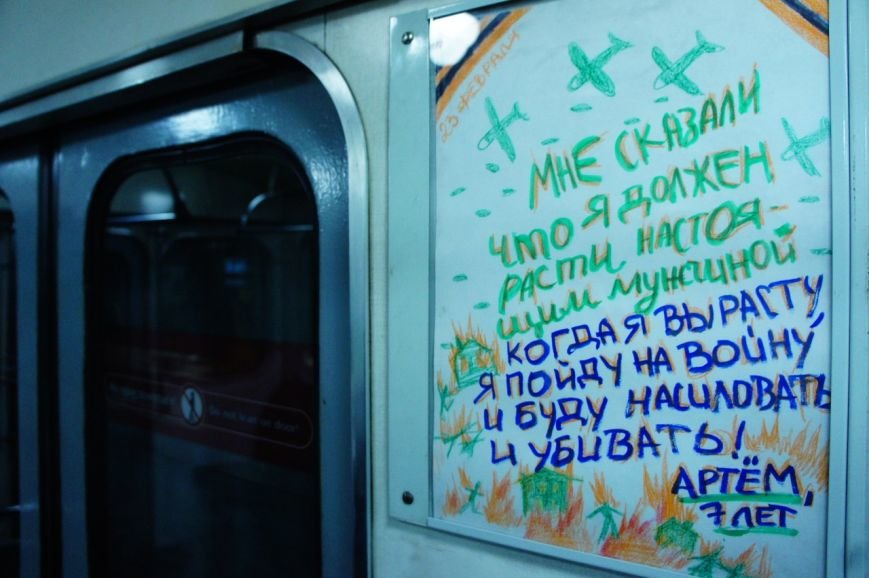 23 ФЕВРАЛЯ
МНЕ СКАЗАЛИ
ЧТО Я ДОЛЖЕН
РАСТИ НАСТОЯ-
ЩИМ МУЖЧИНОЙ
КОГДА Я ВЫРАСТУ,
Я ПОЙДУ НА ВОЙНУ
И БУДУ НАСИЛОВАТЬ
И УБИВАТЬ!
АРТЁМ,
7 ЛЕТ
Do not lean on doors